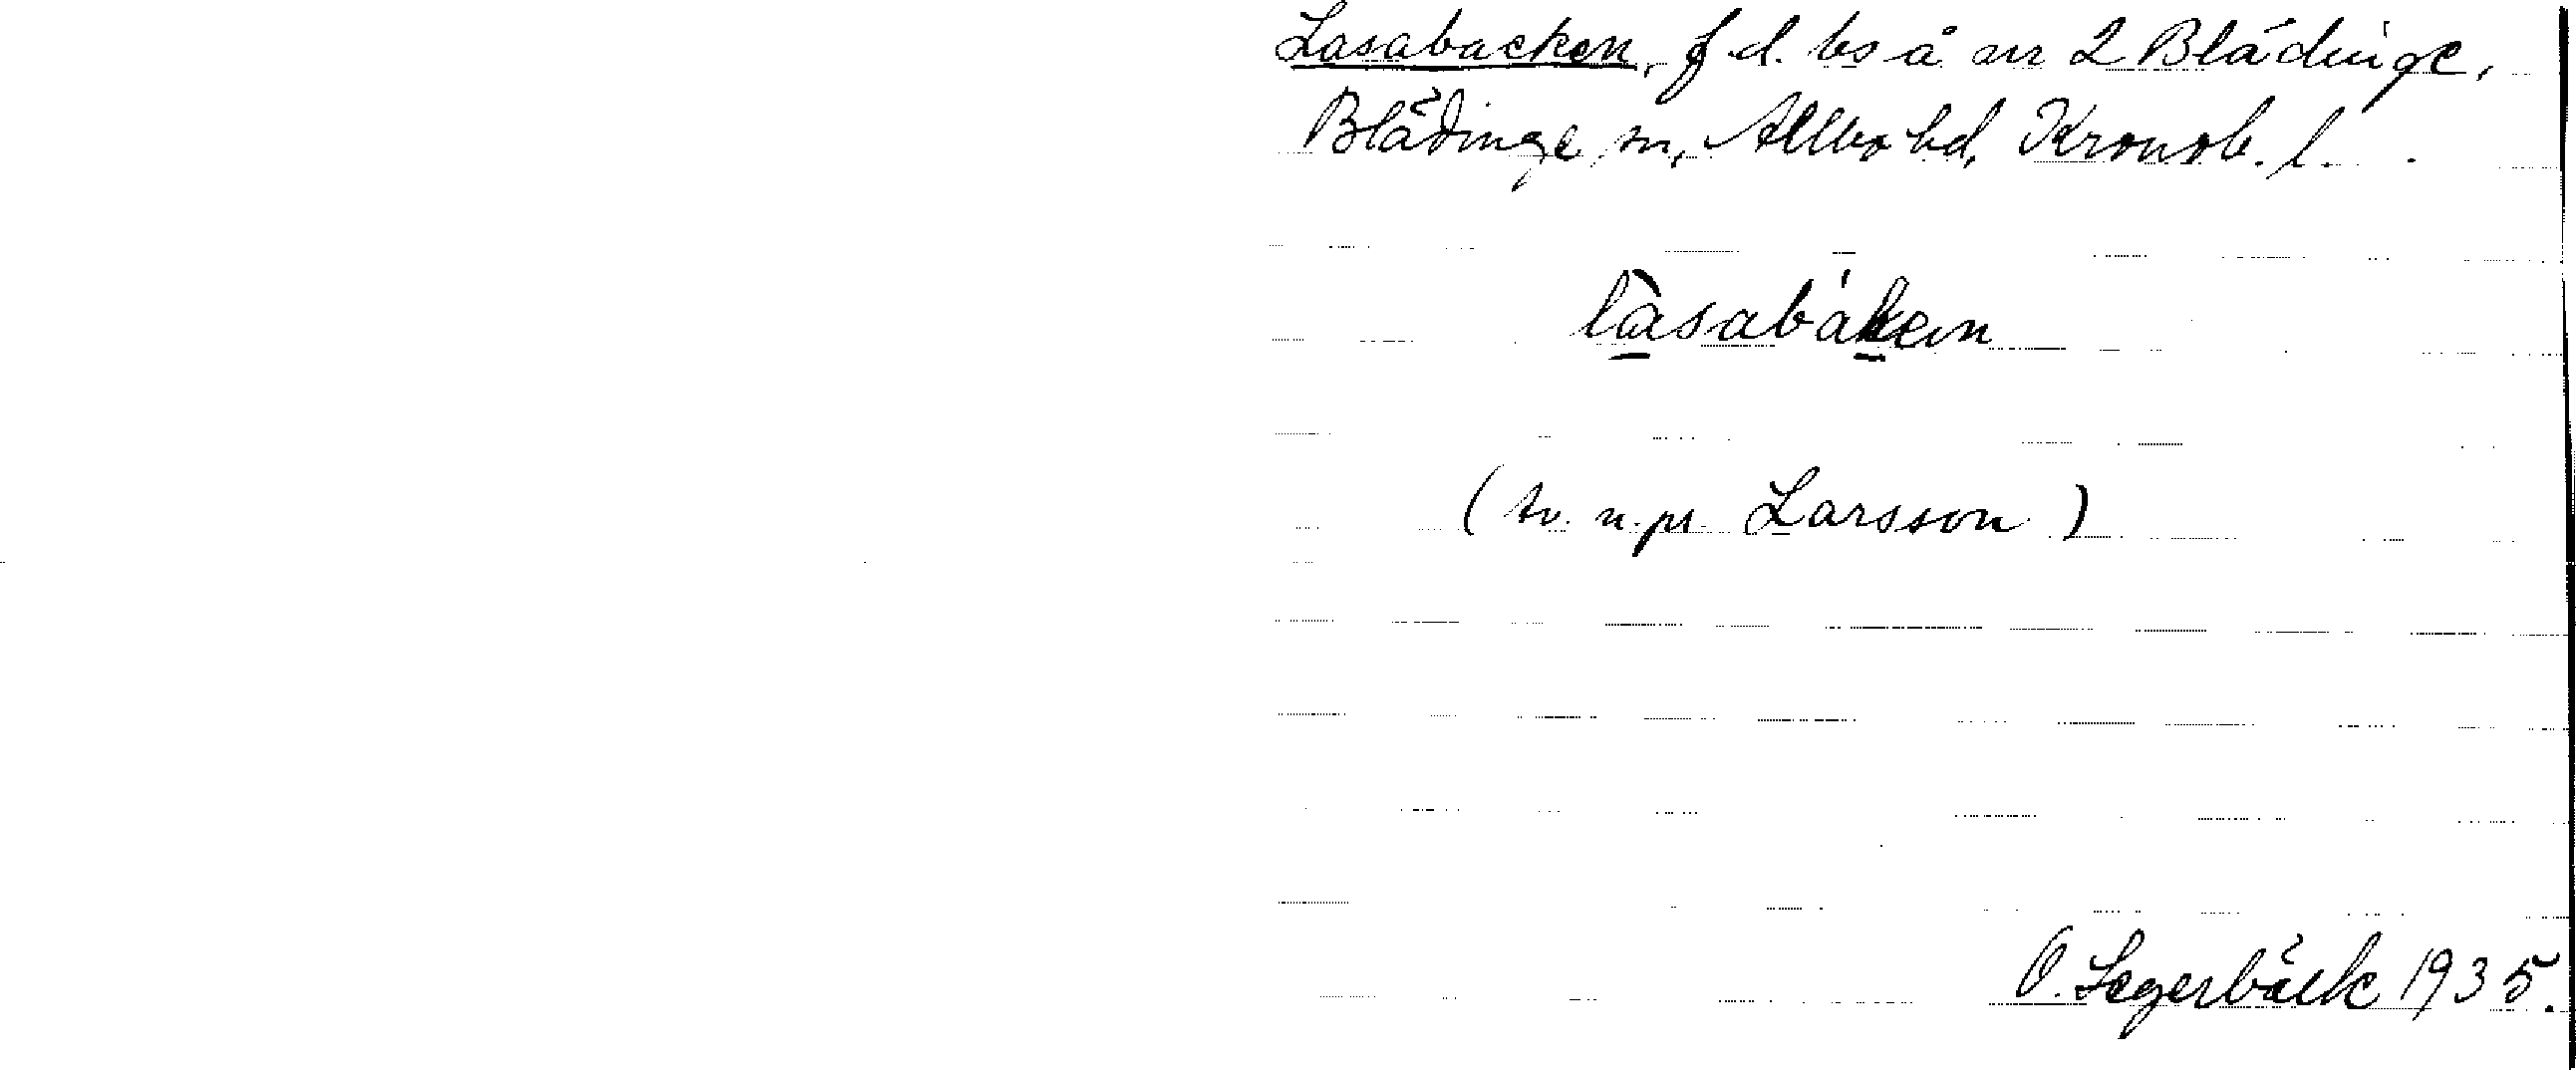 Lasabacken, f d. bs å nr 2 Blädinge,
Blädinge sn, Allbo hd, Kronob. l.
làsabák̲en
(tv. n. pr. Larsson)
O. Segerbäck 1935.